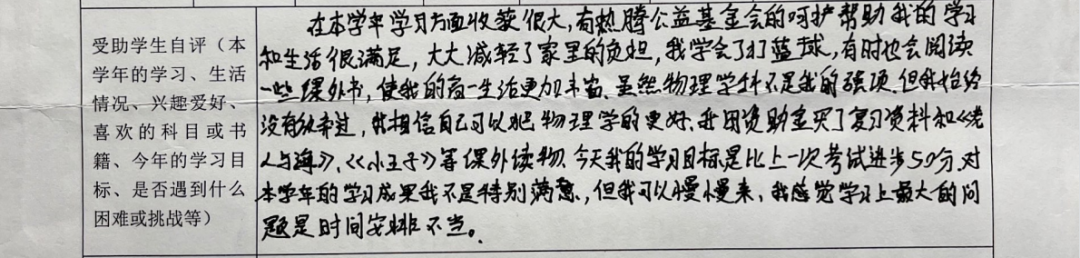 受助学生自评（本
学年的学习、生活
情况、兴趣爱好、
喜欢的科目或书
籍、今年的学习目
标、是否遇到什么
困难或挑战等）
在本学年学习方面收获很大，有热腾公益基金会的呵护帮助我的学习
和生活很满足，大大减轻了家里的负担，我学会了打篮球，有时也会阅读
一些课外书，使我的高一生活更加丰富。虽然物理学科不是我的强项，但我始终
没有放弃过，我相信自己可以把物理学的更好，我用资助金买了复习资料和《老
人与海》、《小王子》等课外读物，今天我的学习目标是比上一次考试进步50分，对
本学年的学习成果我不是特别满意，但我可以慢慢来，我感觉学习上最大的问
题是时间安排不当。